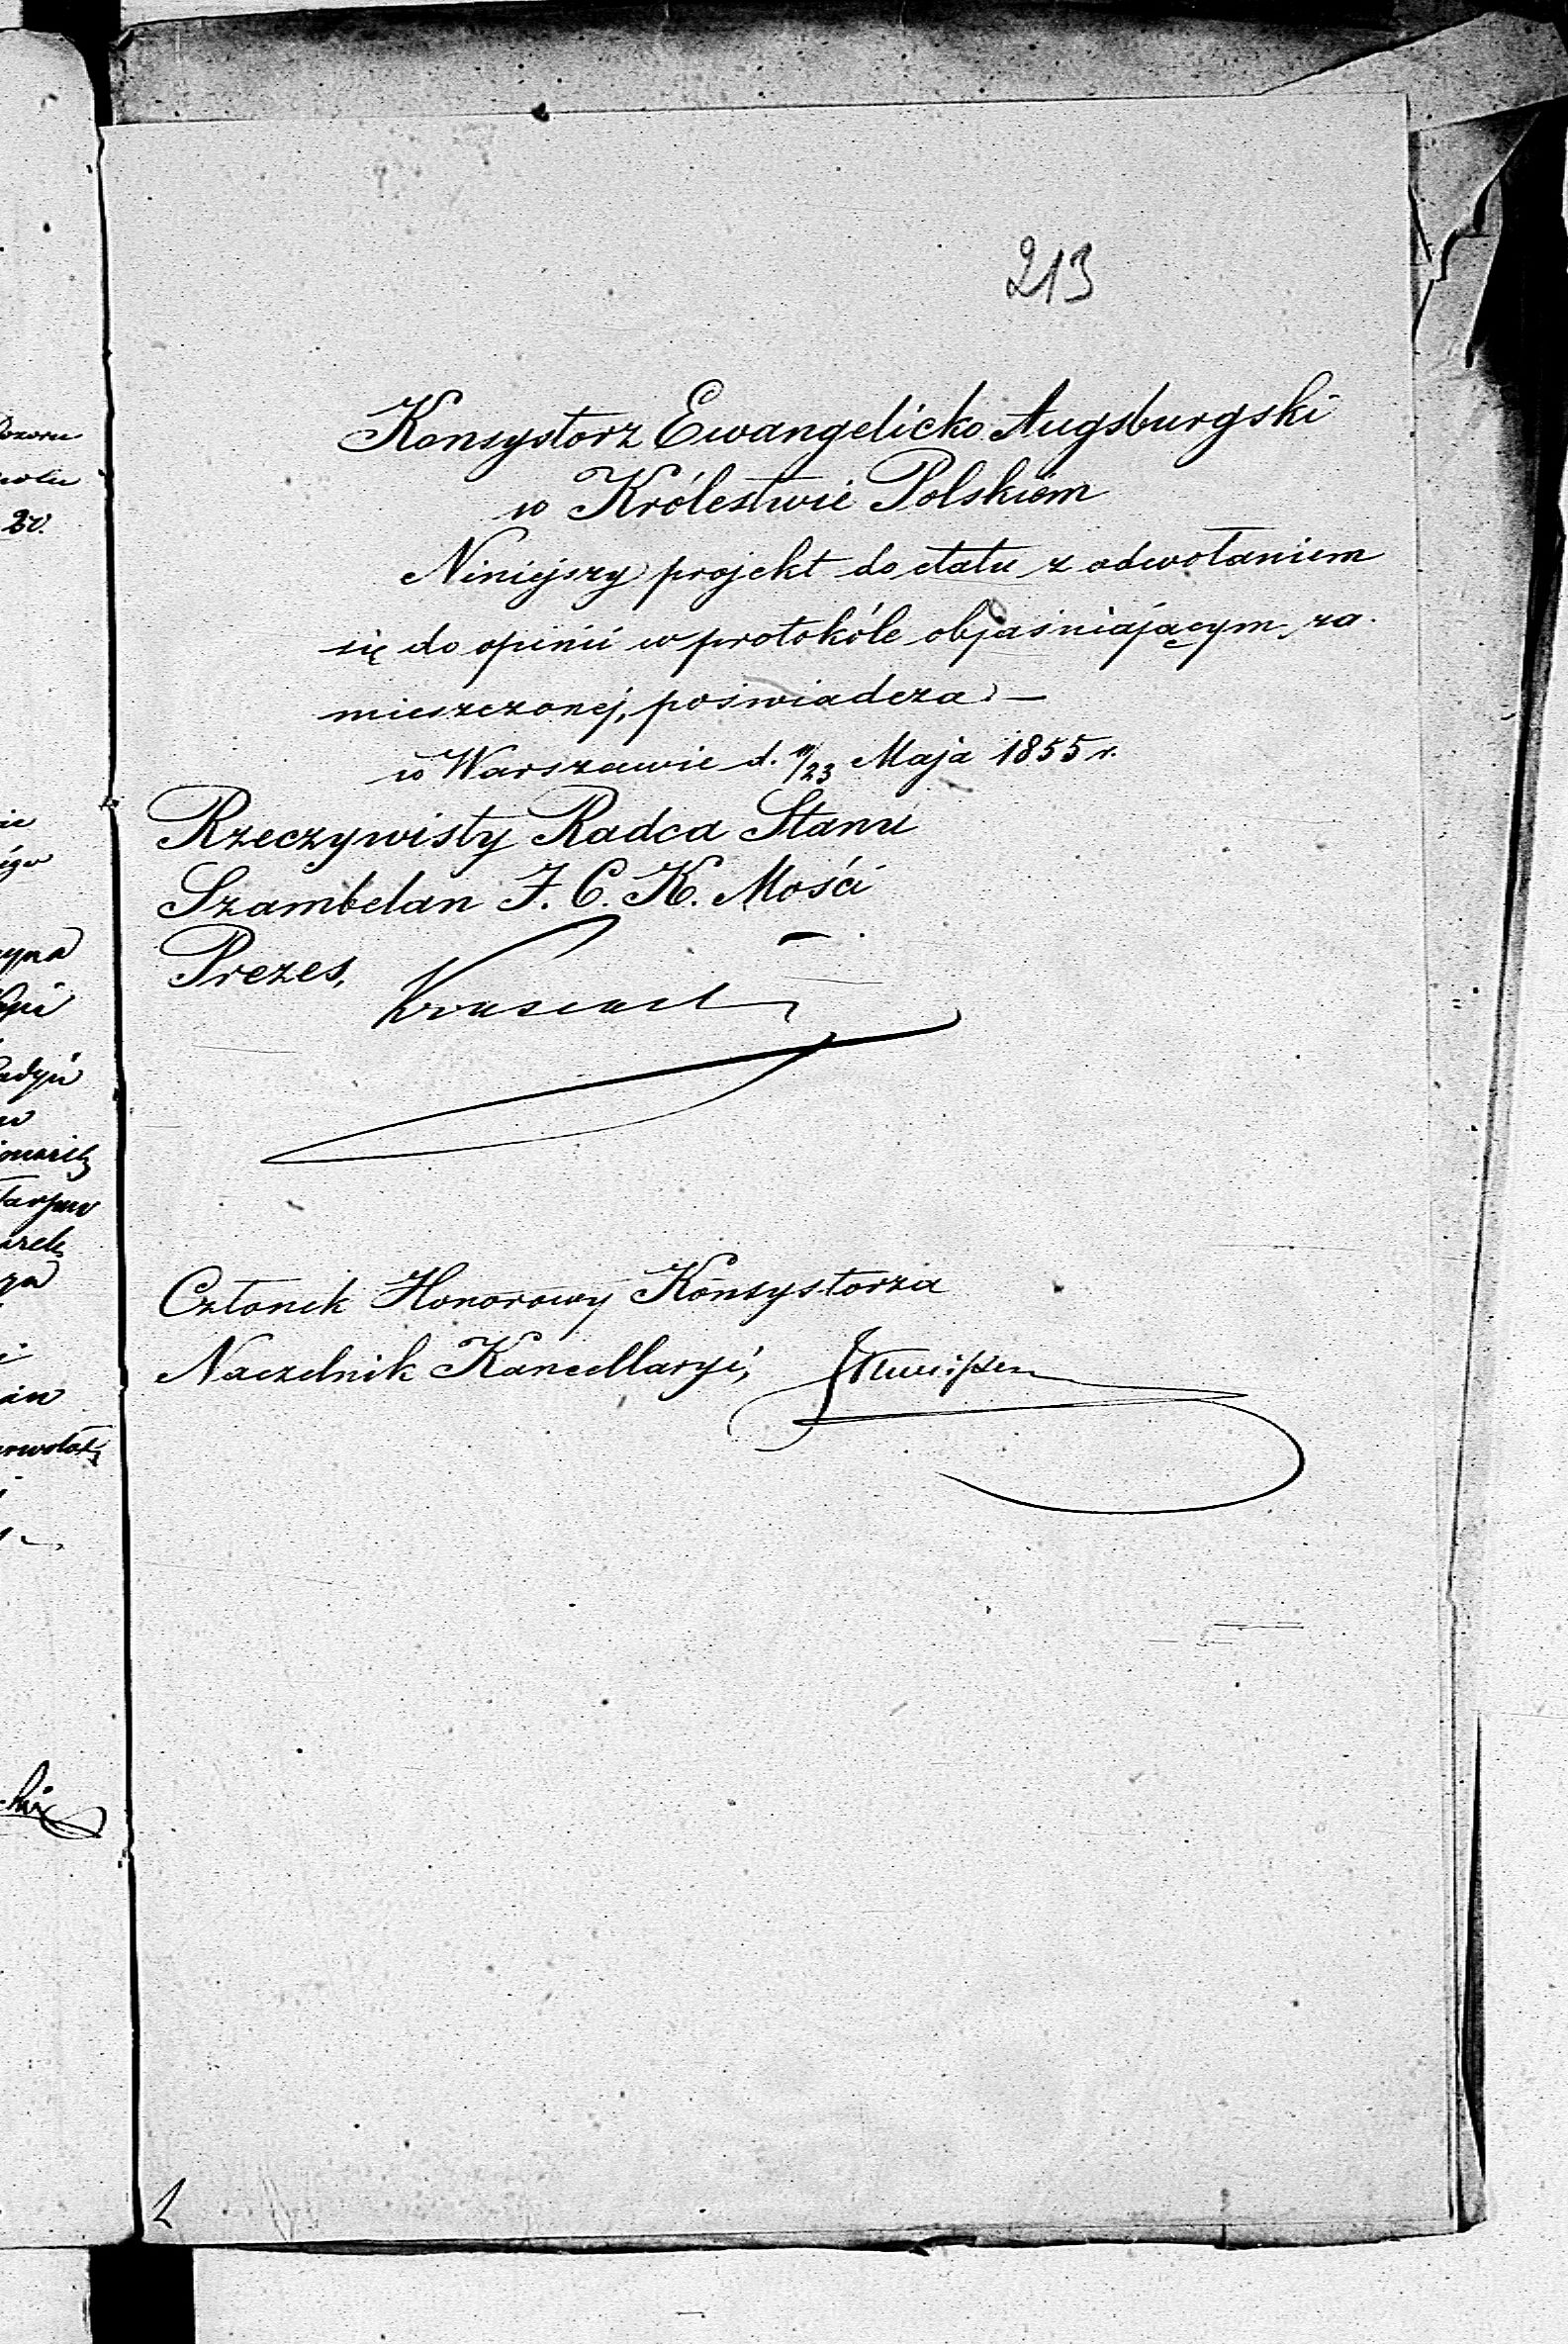 213
Konsystorz Ewangelicko Augsburgski
w Królestwie Polskiem
Niniejszy projekt do etatu z odwołaniem
się do opinii w protokóle objaśniającym za-
mieszczonej, poświadcza. —
w Warszawie d. 11/23 Maja 1855 r.
Rzeczywisty Radca Stanu
Szambelan J. C. K. Mości
Prezes,
Członek Honorowy Konsystorza
Naczelnik Kancellaryi,